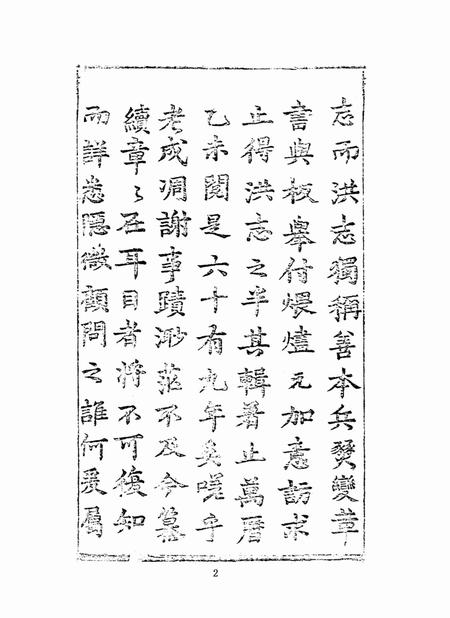 志而洪志獨稱善本兵燹變革
書與板舉付煨燼无加意訪求
止得洪志之半其輯畧止萬曆
乙未閱是六十有九年矣嗟乎
老成凋謝事蹟渺茫不及今纂
續章章在耳目者將不可復知
而詳悉隱微顧問之誰何爰屬
2